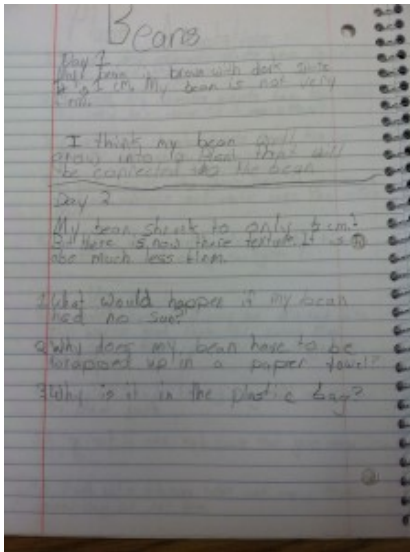 Beans
Day 1
My bean is brown with dark
It is 1 cm. My bean is not very
I think my bean will
grow into a that will
be connected to the bean
Day 2
My bean shrunk to only cm!
But there is now more texture. It is
also much less
1. What would happen if my bean
had no sun?
2. Why does my bean have to be
wrapped up in a paper towel?
3. Why is it in the plastic bag?